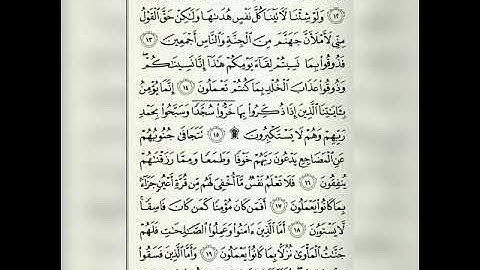 ١٢ وَلَوْ شِئْنَا لَآتَيْنَا كُلَّ نَفْسٍ هُدَىٰهَا وَلَٰكِنْ حَقَّ الْقَوْلُ
مِنِّي لَأَمْلَأَنَّ جَهَنَّمَ مِنَ الْجِنَّةِ وَالنَّاسِ أَجْمَعِينَ ١٣
فَذُوقُوا بِمَا نَسِيتُمْ لِقَاءَ يَوْمِكُمْ هَٰذَا إِنَّا نَسِينَٰكُمْ
وَذُوقُوا عَذَابَ الْخُلْدِ بِمَا كُنتُمْ تَعْمَلُونَ ١٤ إِنَّمَا يُؤْمِنُ
بِـَٔايَٰتِنَا الَّذِينَ إِذَا ذُكِّرُوا بِهَا خَرُّوا سُجَّدًا وَسَبَّحُوا بِحَمْدِ
رَبِّهِمْ وَهُمْ لَا يَسْتَكْبِرُونَ ۩ ١٥ تَتَجَافَىٰ جُنُوبُهُمْ
عَنِ الْمَضَاجِعِ يَدْعُونَ رَبَّهُمْ خَوْفًا وَطَمَعًا وَمِمَّا رَزَقْنَٰهُمْ
يُنفِقُونَ ١٦ فَلَا تَعْلَمُ نَفْسٌ مَّا أُخْفِيَ لَهُم مِّن قُرَّةِ أَعْيُنٍ جَزَاءً
بِمَا كَانُوا يَعْمَلُونَ ١٧ أَفَمَن كَانَ مُؤْمِنًا كَمَن كَانَ فَاسِقًا
لَّا يَسْتَوُونَ ١٨ أَمَّا الَّذِينَ ءَامَنُوا وَعَمِلُوا الصَّٰلِحَٰتِ فَلَهُمْ
جَنَّٰتُ الْمَأْوَىٰ نُزُلًا بِمَا كَانُوا يَعْمَلُونَ ١٩ وَأَمَّا الَّذِينَ فَسَقُوا